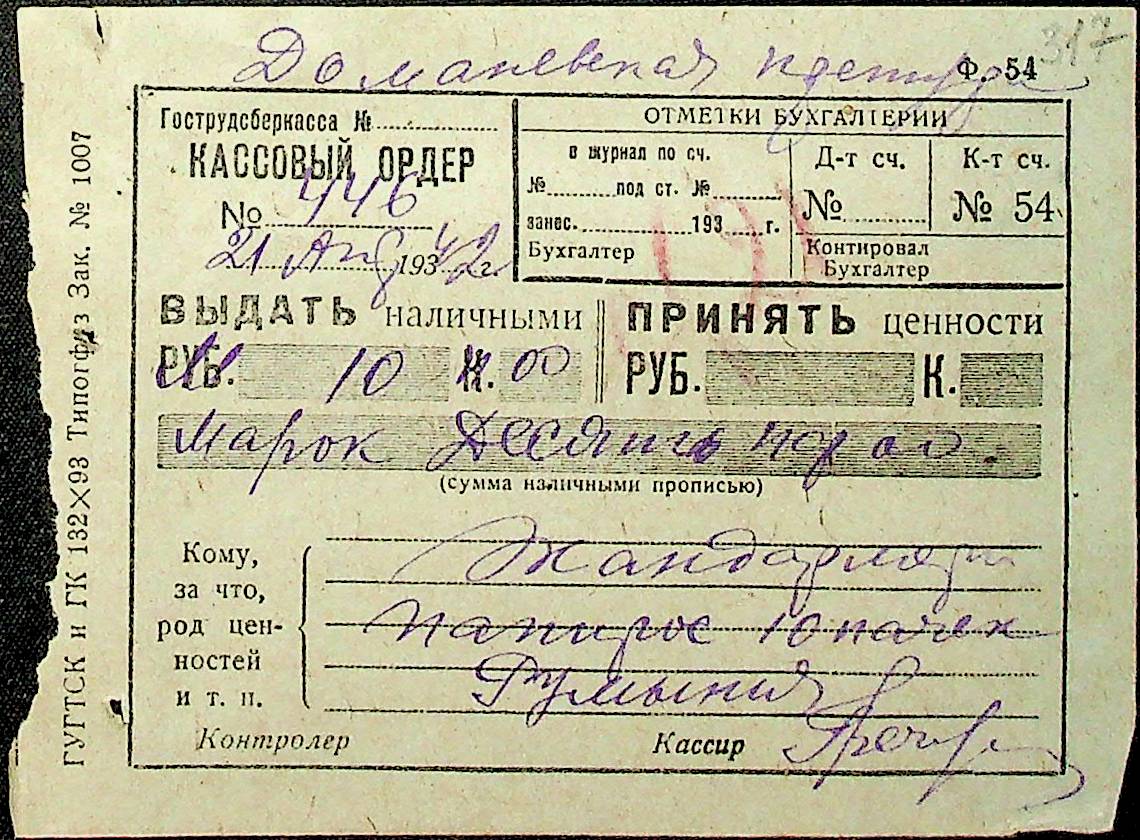 317
Доманевская претура
Ф. 54
Гострудсберкасса №
КАССОВЫЙ ОРДЕР
№ 446
21 Апр 1942 г.
ОТМЕТКИ БУХГАЛТЕРИИ
в журнал по сч.
№ под ст. №
занес. 193 г.
Бухгалтер
Д-т сч.
№
К-т сч.
№ 54
Контировал
Бухгалтер
ВЫДАТЬ наличными
РУБ. 10 К. 00
ПРИНЯТЬ ценности
РУБ. К.
Марок Десять мар 00.
(сумма наличными прописью)
Кому,
за что,
род цен-
ностей
и т. п.
Жандармерии
Папирос 10 пачек
Румыния
Контролер
Кассир
ГУГТСК и ГК 132×93 Типогриз Зак. № 1007